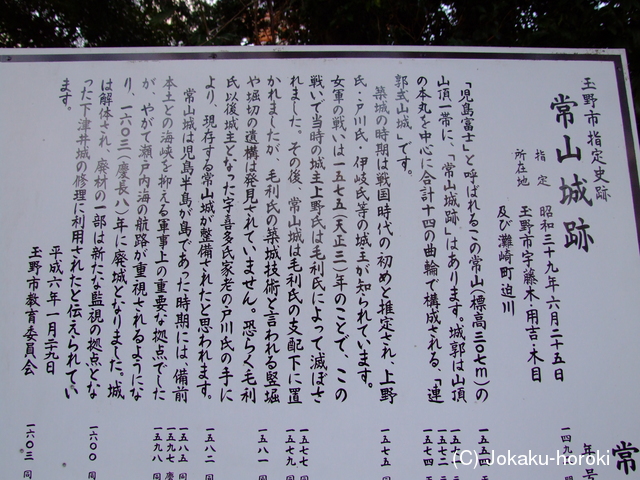 玉野市指定史跡
常山城跡
指定　昭和三十九年六月二十五日
所在地　玉野市宇藤木・用吉・木目
及び灘崎町迫川
「児島富士」と呼ばれるこの常山(標高三〇七m)の
山頂一帯に、「常山城跡」はあります。城郭は山頂
の本丸を中心に合計十四の曲輪で構成される、「連
郭式山城」です。
築城の時期は戦国時代の初めと推定され、上野
氏・戸川氏・伊岐氏等の城主が知られています。
女軍の戦いは一五七五(天正三)年のことで、この
戦いで当時の城主上野氏は毛利氏によって滅ぼさ
れました。その後、常山城は毛利氏の支配下に置
かれましたが、毛利氏の築城技術と言われる竪堀
や堀切の遺構は発見されていません。恐らく毛利
氏以後城主となった宇喜多氏家老の戸川氏の手に
より、現存する常山城が整備されたと思われます。
常山城は児島半島が島であった時期には、備前
本土との海峡を抑える軍事上の重要な拠点でした
が、やがて瀬戸内海の航路が重視されるようにな
り、一六〇三(慶長八)年に廃城となりました。城
は解体され、廃材の一部は新たな監視の拠点とな
った下津井城の修理に利用されたと伝えられてい
ます。
平成六年一月二九日
玉野市教育委員会
常
年号
一四九
一五五四
一五七二
一五七四
一五七五
一五七七
一五七九
一五八一
一五八二
一五八五
一五九七 慶
一五九八
一六〇〇 同
一六〇三 同
(C) Jokaku-horoki